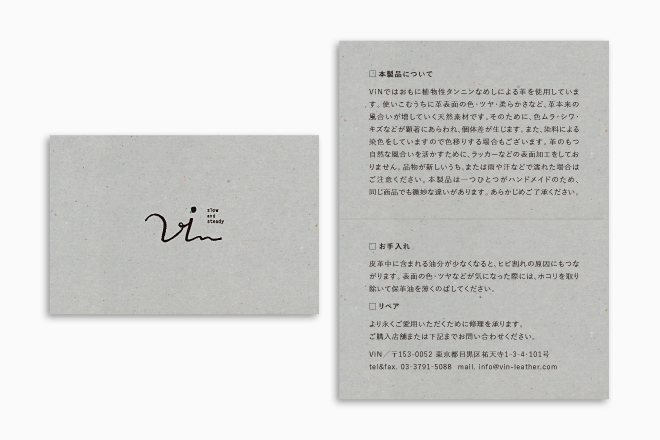 Vin
slow
and
steady
□ 本製品について
ViNではおもに植物性タンニンなめしによる革を使用していま
す。使いこむうちに革表面の色・ツヤ・柔らかさなど、革本来の
風合いが増していく天然素材です。そのために、色ムラ・シワ・
キズなどが顕著にあらわれ、個体差が生じます。また、染料による
染色をしていますので色移りする場合もございます。革のもつ
自然な風合いを活かすために、ラッカーなどの表面加工をしてお
りません。品物が新しいうち、または雨や汗などで濡れた場合は
ご注意ください。本製品は一つひとつがハンドメイドのため、
同じ商品でも微妙な違いがあります。あらかじめご了承ください。
□ お手入れ
皮革中に含まれる油分が少なくなると、ヒビ割れの原因にもつな
がります。表面の色・ツヤなどが気になった際には、ホコリを取り
除いて保革油を薄くのばしてください。
□ リペア
より永くご愛用いただくために修理を承ります。
ご購入店舗または下記までお問い合わせください。
ViN／〒153-0052 東京都目黒区祐天寺1-3-4-101号
tel&fax. 03-3791-5088 mail. info@vin-leather.com